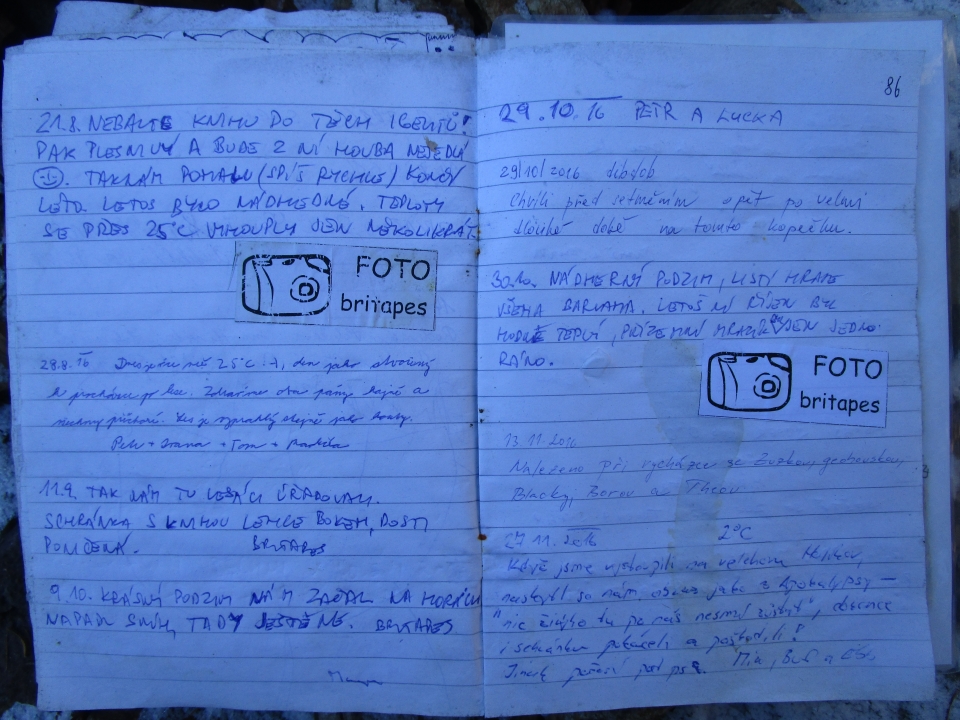 21.8. NEBALTE KNIHU DO TĚCH IGELITŮ!
PAK PLESNIVÝ A BUDE Z NÍ HOUBA NEJEDLÁ
TAK NÁM POMALU (SPÍŠ RYCHLE) KONČÍ
LÉTO. LETOS BYLO NÁDHERNÉ. TEPLOTY
SE PŘES 25°C VYHOUPLY JEN NĚKOLIKRÁT
FOTO
britapes
28.8.16 než 25°C :-), den jako stvořený
k procházce po lese. stejně a
Les je stejně jako houby.
Petr + Ivana + Tom +
11.9. TAK NÁM TU LESÁCI ÚŘADOVALI.
SCHRÁNKA S KNIHOU LEHCE BOKEM, DOSTI
PONIČENÁ. BRITAPES
9.10. KRÁSNÝ PODZIM NÁM ZAČAL NA HORÁCH
NAPADL SNÍH, TADY JEŠTĚ NE. BRITAPES
86
29.10.16 PETR A LUCKA
29/10/2016
Chvíli před setměním opět po velmi
dlouhé době na tomto kopečku.
30.10. NÁDHERNÝ PODZIM, LISTÍ HRAJE
VŠEMA BARVAMA. LETOŠNÍ ŘÍJEN BYL
HODNĚ TEPLÝ, PŘÍZEMNÍ MRAZÍK JEN JEDNO
RÁNO.
FOTO
britapes
13.11.2016
Nalezeno při vycházce se Zuzkou,
Blacky, Borov a
27.11.2016 2°C
Když jsme vystoupili na vrchol
naskytl se nám obraz jako z Apokalypsy –
"nic živýho tu po nás nesmí zůstat",
i schránku a poškodili!
Jinak počasí pod psa. Mia,